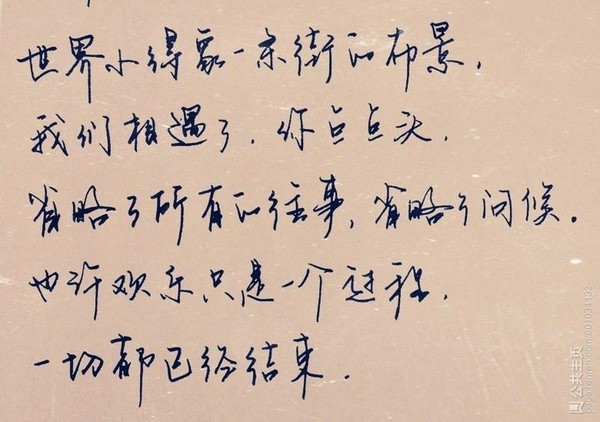 世界小得象一条街的布景,
我们相遇了,你点点头,
省略了所有的往事,省略了问候。
也许欢乐只是一个过程,
一切都已经结束.
公共主页